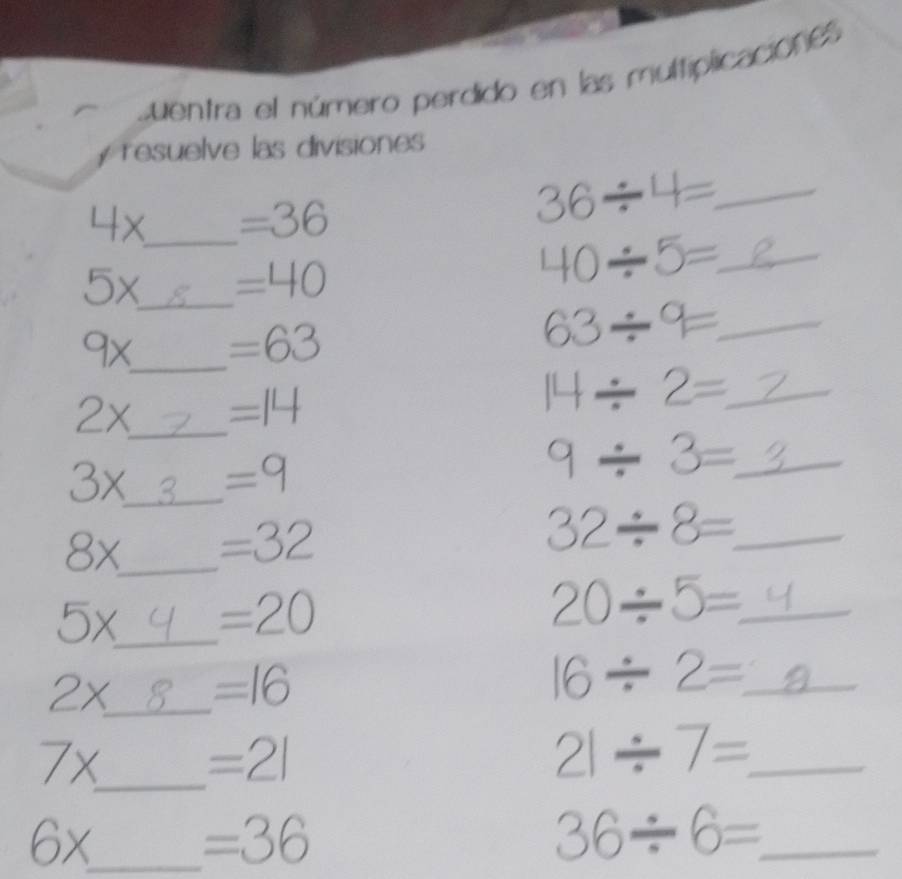 el número perdido en las multiplicaciones
y resuelve las divisiones
4x____=36 36÷4=____
5x_8_=40 40÷5=_8_
9x____=63 63÷9=____
2x_7_=14 14÷2=_7_
3x_3_=9 9÷3=_3_
8x____=32 32÷8=____
5x_4_=20 20÷5=_4_
2x_8_=16 16÷2=_8_
7x____=21 21÷7=____
6x____=36 36÷6=____